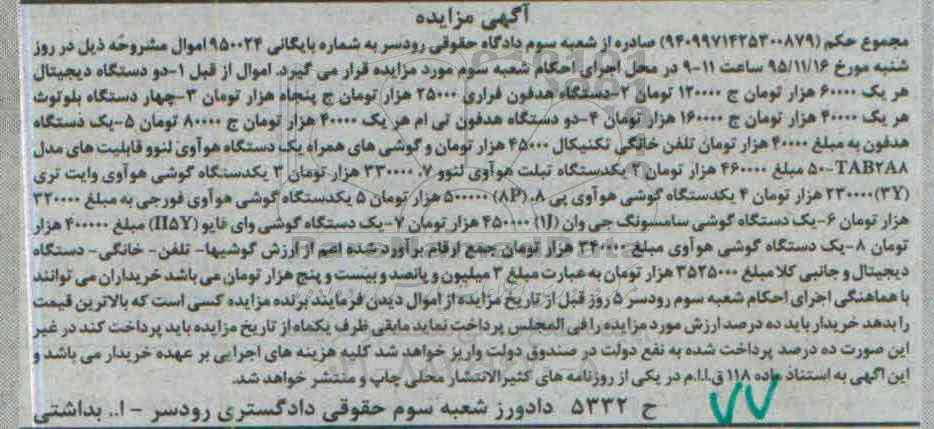 آگهی مزایده
مجموع حکم (۹۴۰۹۹۷۱۴۲۵۳۰۰۸۷۹) صادره از شعبه سوم دادگاه حقوقی رودسر به شماره بایگانی ۹۵۰۰۲۴ اموال مشروحه ذیل در روز
شنبه مورخ ۹۵/۱۱/۱۶ ساعت ۱۱-۹ در محل اجرای احکام شعبه سوم مورد مزایده قرار می گیرد. اموال از قبل ۱-دو دستگاه دیجیتال
هر یک ۶۰۰۰۰ هزار تومان ج ۱۲۰۰۰۰ تومان ۲-دستگاه هدفون فراری ۲۵۰۰۰ هزار تومان ج پنجاه هزار تومان ۳-چهار دستگاه بلوتوث
هر یک ۴۰۰۰۰ هزار تومان ج ۱۶۰۰۰۰ هزار تومان ۴-دو دستگاه هدفون تی ام هر یک ۴۰۰۰۰ هزار تومان ج ۸۰۰۰۰ تومان ۵-یک دستگاه
هدفون به مبلغ ۴۰۰۰۰ هزار تومان تلفن خانگی تکنیکال ۴۵۰۰۰ هزار تومان و گوشی های همراه یک دستگاه هوآوی لنوو قابلیت های مدل
۵۰-TAB۲A۸ مبلغ ۴۶۰۰۰۰ هزار تومان ۲ یکدستگاه تبلت هوآوی لنوو ۷، ۳۳۰۰۰۰ هزار تومان ۳ یکدستگاه گوشی هوآوی وایت تری
(۳Y) ۲۳۰۰۰۰ هزار تومان ۴ یکدستگاه گوشی هوآوی پی ۸، (۸P) ۵۰۰۰۰۰ هزار تومان ۵ یکدستگاه گوشی هوآوی فورجی به مبلغ ۳۲۰۰۰۰
هزار تومان ۶-یک دستگاه گوشی سامسونگ جی وان (۱J) ۴۵۰۰۰۰ هزار تومان ۷-یک دستگاه گوشی وای فایو (II۵Y) مبلغ ۴۰۰۰۰۰ هزار
تومان ۸-یک دستگاه گوشی هوآوی مبلغ ۳۴۰۰۰۰ هزار تومان جمع ارقام برآورد شده اعم از ارزش گوشیها- تلفن- خانگی- دستگاه
دیجیتال و جانبی کلا مبلغ ۳۵۲۵۰۰۰ هزار تومان به عبارت مبلغ ۳ میلیون و پانصد و بیست و پنج هزار تومان می باشد خریداران می توانند
با هماهنگی اجرای احکام شعبه سوم رودسر ۵ روز قبل از تاریخ مزایده از اموال دیدن فرمایند برنده مزایده کسی است که بالاترین قیمت
را بدهد خریدار باید ده درصد ارزش مورد مزایده را فی المجلس پرداخت نماید مابقی ظرف یکماه از تاریخ مزایده باید پرداخت کند در غیر
این صورت ده درصد پرداخت شده به نفع دولت در صندوق دولت واریز خواهد شد کلیه هزینه های اجرایی بر عهده خریدار می باشد و
این اگهی به استناد ماده ۱۱۸ ق.ا.ا.م در یکی از روزنامه های کثیرالانتشار محلی چاپ و منتشر خواهد شد.
ح ۵۳۳۲ دادورز شعبه سوم حقوقی دادگستری رودسر - ا.. بداشتی
۷۷